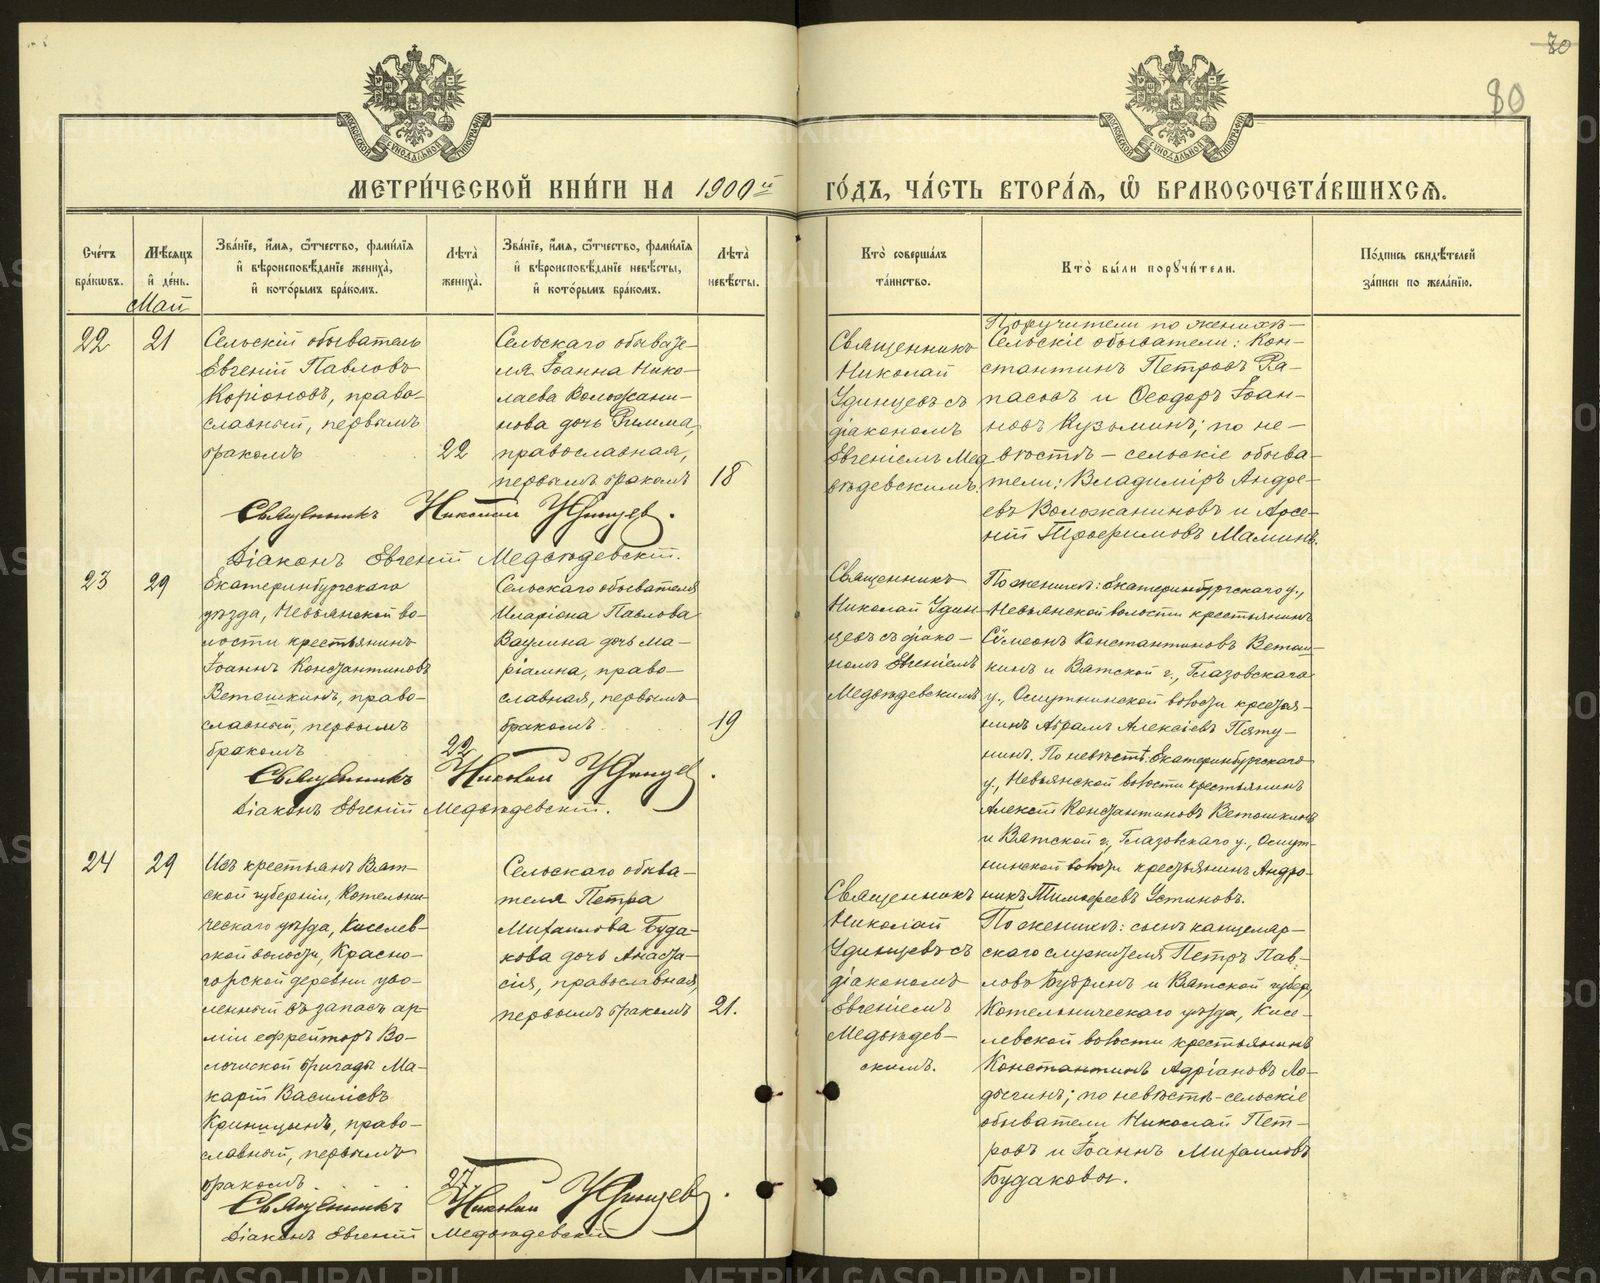 80
80
МОСКОВСКОЙ СѴНОДАЛЬНОЙ ТИПОГРАФІИ
МОСКОВСКОЙ СѴНОДАЛЬНОЙ ТИПОГРАФІИ
МЕТРИ́ЧЕСКОЙ КНИ́ГИ НА 1900й
ГО́ДЪ, ЧА́СТЬ ВТОРА́Я, Ѿ БРАКОСОЧЕТА́ВШИХСЯ.
Сче́тъ бра́кѡвъ.
Мѣ́сяцъ и҆ де́нь.
Май
Зва́нїе, и҆́мя, ѻ҆́тчество, фамилїя
и҆ вѣроисповѣ́данїе жениха̀,
и҆ кото́рымъ бра́комъ.
Лѣ́та̀ жениха̀.
Зва́нїе, и҆́мя, ѻ҆́тчество, фамилїя
и҆ вѣроисповѣ́данїе невѣ́сты,
и҆ кото́рымъ бра́комъ.
Лѣ́та̀ невѣ́сты.
Кто̀ соверша́лъ
та́инство.
Кто̀ бы́ли порꙋчи́тели.
По́дпись свидѣ́телей
за́писи по жела́нїю.
22
21
Сельскій обыватель
Евгеній Павловъ
Коріоновъ, право-
славный, первымъ
бракомъ
22
Сельскаго обывате-
ля Іоанна Нико-
лаева Воложани-
нова дочь Римма,
православная,
первымъ бракомъ
18
Священникъ
Николай
Удинцевъ съ
діакономъ
Евгеніемъ Мед
вѣдевскимъ.
Поручители по женихѣ —
Сельскіе обыватели: Кон-
стантинъ Петровъ Ра-
пасовъ и Ѳеодоръ Іоан-
новъ Кузьминъ; по не-
вѣстѣ — сельскіе обыва-
тели: Владиміръ Андре-
евъ Воложаниновъ и Арсе-
ній Трофимовъ Маминъ.
Священникъ Николай Удинцев.
Діаконъ Евгеній Медвѣдевскій.
23
29
Екатеринбургскаго
уѣзда, Невьянской во-
лости крестьянинъ
Іоаннъ Константиновъ
Ветошкинъ, право-
славный, первымъ
бракомъ
22
Сельскаго обывателя
Иларіона Павлова
Ваулина дочь Ма-
ріамна, право-
славная, первымъ
бракомъ.
19
Священникъ
Николай Удин-
цевъ съ діако-
номъ Евгеніемъ
Медвѣдевскимъ
По женихѣ: Екатеринбургскаго у.,
Невьянской волости крестьянинъ
Сѵмеонъ Константиновъ Ветош-
кинъ и Вятской г., Глазовскаго
у., Омутнинской волости крестья-
нинъ Абрамъ Алексіевъ Пяту-
нинъ. По невѣстѣ: Екатеринбургскаго
у., Невьянской волости крестьянинъ
Алексій Константиновъ Ветошкинъ
и Вятской г., Глазовскаго у., Омут-
нинской волости крестьянинъ Андро-
никъ Тимофеевъ Устиновъ.
Священникъ Николай Удинцев.
Діаконъ Евгеній Медвѣдевскій.
24
29
Изъ крестьянъ Вят-
ской губерніи, Котельни-
ческаго уѣзда, Киселев-
ской волости, Красно-
горской деревни уво-
ленный въ запасъ ар-
міи ефрейторъ Во-
лочиской бригады Ма-
карій Василіевъ
Криницынъ, право-
славный, первымъ
бракомъ.
27.
Сельскаго обыва-
теля Петра
Михаилова Буда-
кова дочь Анаста-
сія, православная,
первымъ бракомъ
21.
Священникъ
Николай
Удинцевъ съ
діакономъ
Евгеніемъ
Медвѣдев-
скимъ.
По женихѣ: сынъ канцеляр-
скаго служителя Петръ Пав-
ловъ Будринъ и Вятской губер,
Котельническаго уѣзда, Кисе-
левской волости крестьянинъ
Константинъ Адріановъ Ло-
дыгинъ; по невѣстѣ - сельскіе
обыватели Николай Пет-
ровъ и Іоаннъ Михаиловъ
Будаковы.
Священникъ Николай Удинцев.
Діаконъ Евгеній Медвѣдевскій
METRIKI.GASO-URAL.RU